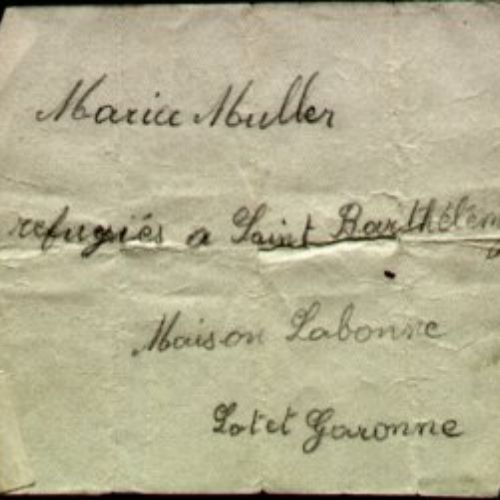 Marice Muller
refugiés a Saint Barthélemy
Maison Labonne
Lot et Garonne